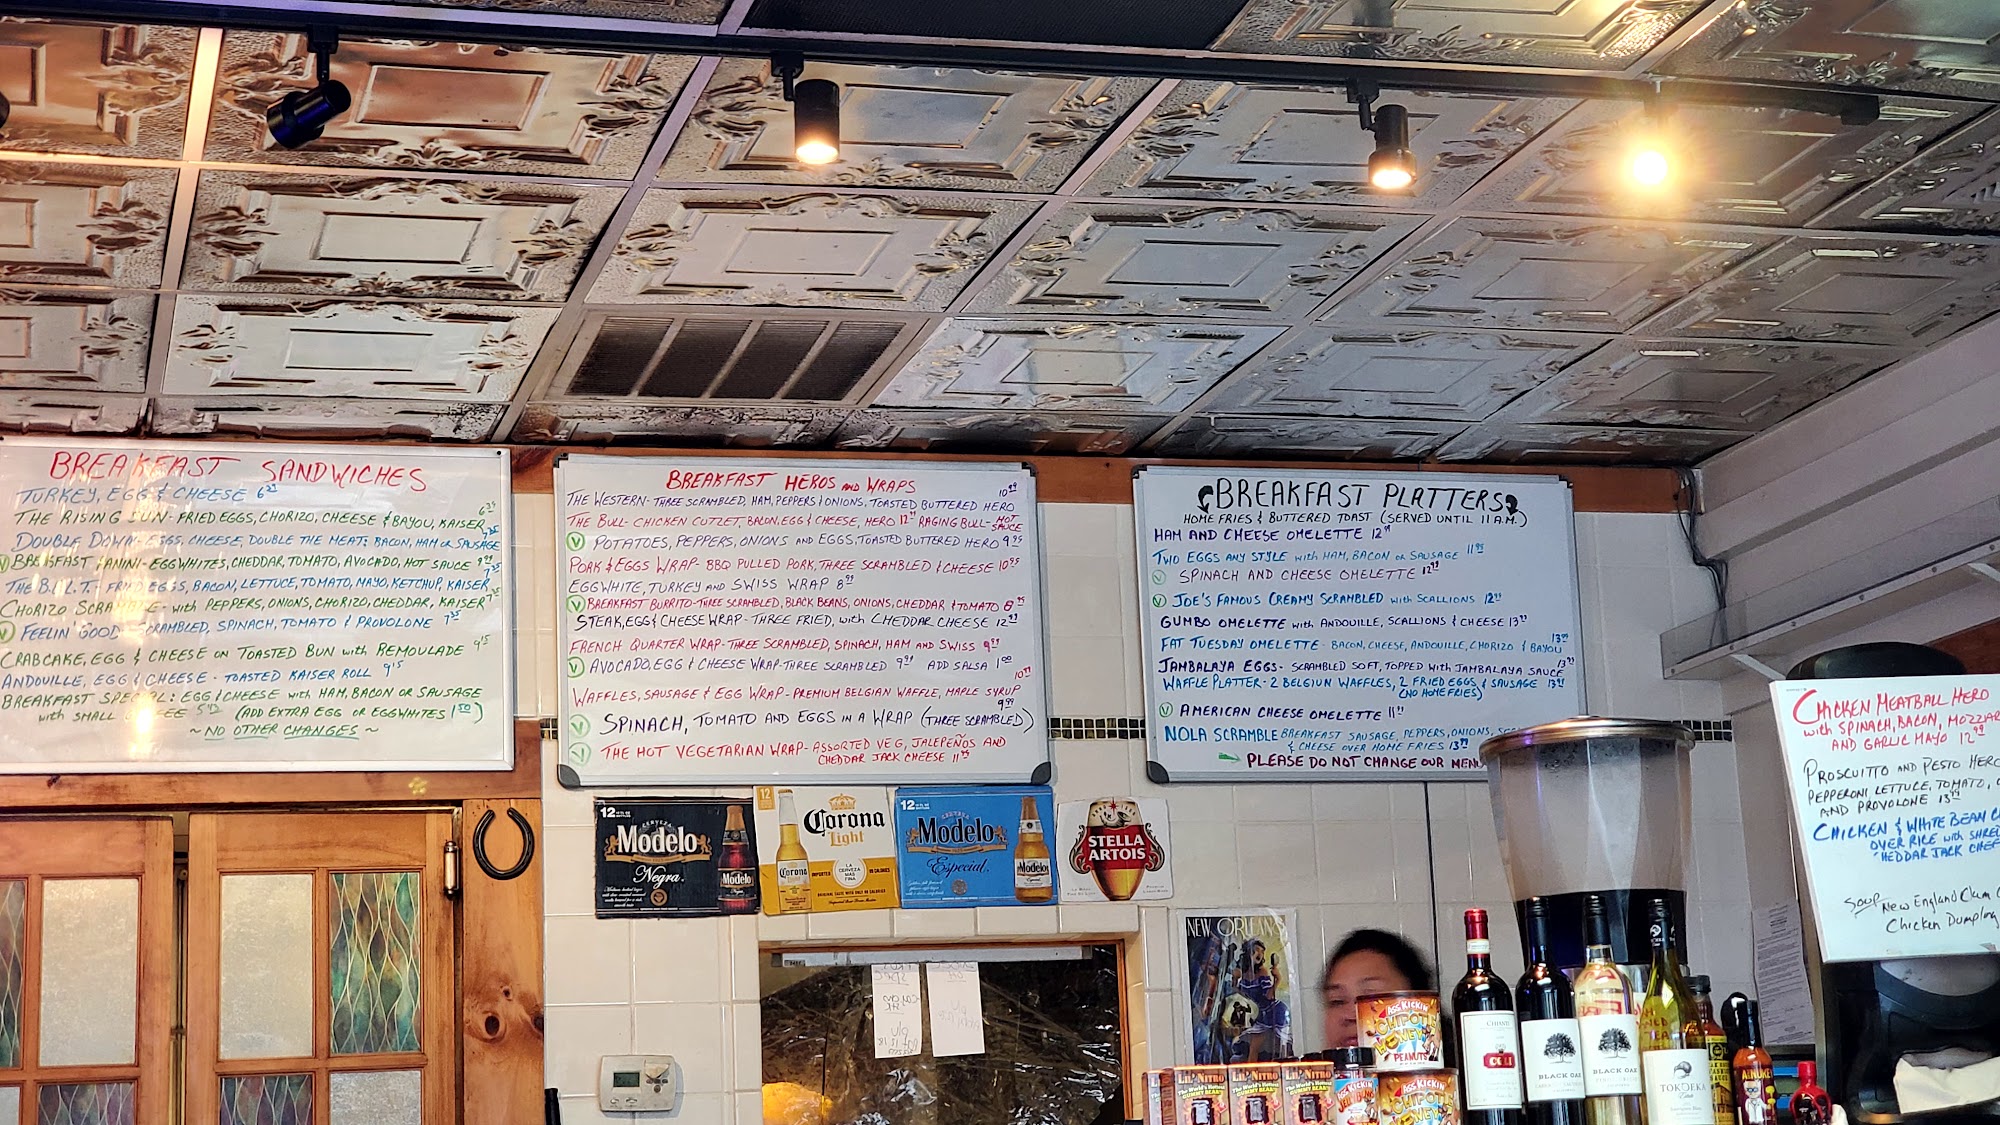 BREAKFAST SANDWICHES
TURKEY, EGG & CHEESE
THE RISING SUN - FRIED EGGS, CHORIZO, CHEESE & BAYOU, KAISER
DOUBLE DOWN - EGGS, CHEESE, DOUBLE THE MEAT: BACON, HAM OR SAUSAGE
V BREAKFAST PANINI - EGG WHITES, CHEDDAR, TOMATO, AVOCADO, HOT SAUCE 9.99
THE B.E.L.T. - FRIED EGGS, BACON, LETTUCE, TOMATO, MAYO, KETCHUP, KAISER
CHORIZO SCRAMBLE - WITH PEPPERS, ONIONS, CHORIZO, CHEDDAR, KAISER
V FEELIN' GOOD - SCRAMBLED, SPINACH, TOMATO & PROVOLONE
CRABCAKE, EGG & CHEESE ON TOASTED BUN WITH REMOULADE
ANDOUILLE, EGG & CHEESE - TOASTED KAISER ROLL
BREAKFAST SPECIAL: EGG & CHEESE WITH HAM, BACON OR SAUSAGE
WITH SMALL COFFEE (ADD EXTRA EGG OR EGGWHITES 1.50)
~ NO OTHER CHANGES ~
BREAKFAST HEROS AND WRAPS
THE WESTERN - THREE SCRAMBLED, HAM, PEPPERS & ONIONS, TOASTED BUTTERED HERO 10.99
THE BULL - CHICKEN CUTZET, BACON, EGG & CHEESE, HERO 12.99 RAGING BULL - HOT SAUCE
V POTATOES, PEPPERS, ONIONS AND EGGS, TOASTED BUTTERED HERO 9.95
PORK & EGGS WRAP - BBQ PULLED PORK, THREE SCRAMBLED & CHEESE 10.95
EGG WHITE, TURKEY AND SWISS WRAP 8.99
V BREAKFAST BURRITO - THREE SCRAMBLED, BLACK BEANS, ONIONS, CHEDDAR & TOMATO
STEAK, EGG & CHEESE WRAP - THREE FRIED, WITH CHEDDAR CHEESE
FRENCH QUARTER WRAP - THREE SCRAMBLED, SPINACH, HAM AND SWISS 9.99
V AVOCADO, EGG & CHEESE WRAP - THREE SCRAMBLED ADD SALSA 1.00
WAFFLES, SAUSAGE & EGG WRAP - PREMIUM BELGIAN WAFFLE, MAPLE SYRUP
V SPINACH, TOMATO AND EGGS IN A WRAP (THREE SCRAMBLED) 9.99
V THE HOT VEGETARIAN WRAP - ASSORTED VEG, JALEPEÑOS AND
CHEDDAR JACK CHEESE
BREAKFAST PLATTERS
HOME FRIES & BUTTERED TOAST (SERVED UNTIL 11 A.M.)
HAM AND CHEESE OMELETTE
TWO EGGS ANY STYLE WITH HAM, BACON OR SAUSAGE 11.95
V SPINACH AND CHEESE OMELETTE 12.99
V JOE'S FAMOUS CREAMY SCRAMBLED WITH SCALLIONS
GUMBO OMELETTE WITH ANDOUILLE, SCALLIONS & CHEESE
FAT TUESDAY OMELETTE - BACON, CHEESE, ANDOUILLE, CHORIZO & BAYOU
JAMBALAYA EGGS - SCRAMBLED SOFT, TOPPED WITH JAMBALAYA SAUCE
WAFFLE PLATTER - 2 BELGIUN WAFFLES, 2 FRIED EGGS & SAUSAGE
(NO HOME FRIES)
V AMERICAN CHEESE OMELETTE
NOLA SCRAMBLE BREAKFAST SAUSAGE, PEPPERS, ONIONS,
& CHEESE OVER HOME FRIES
PLEASE DO NOT CHANGE OUR MENU
CHICKEN MEATBALL HERO
WITH SPINACH, BACON,
AND GARLIC MAYO 12.99
PROSCUITTO AND PESTO HERO
PEPPERONI, LETTUCE, TOMATO,
AND PROVOLONE
CHICKEN & WHITE BEAN
OVER RICE WITH
JACK
SOUP New England Clam
Chicken Dumpling
12
CERVEZA
Modelo
Negra.
Modelo
12
Corona
Light
IMPORTED
CERVEZA MAS FINA
Corona
12
CERVEZA
Modelo
Especial.
Modelo
STELLA
ARTOIS
NEW ORLEANS
ASS KICKIN'
CHIPOTLE
HONEY
PEANUTS
ASS KICKIN'
CHIPOTLE
LIL' NITRO
LIL' NITRO
LIL' NITRO
CHIANTI
BLACK OAK
BLACK OAK
TOKOEKA